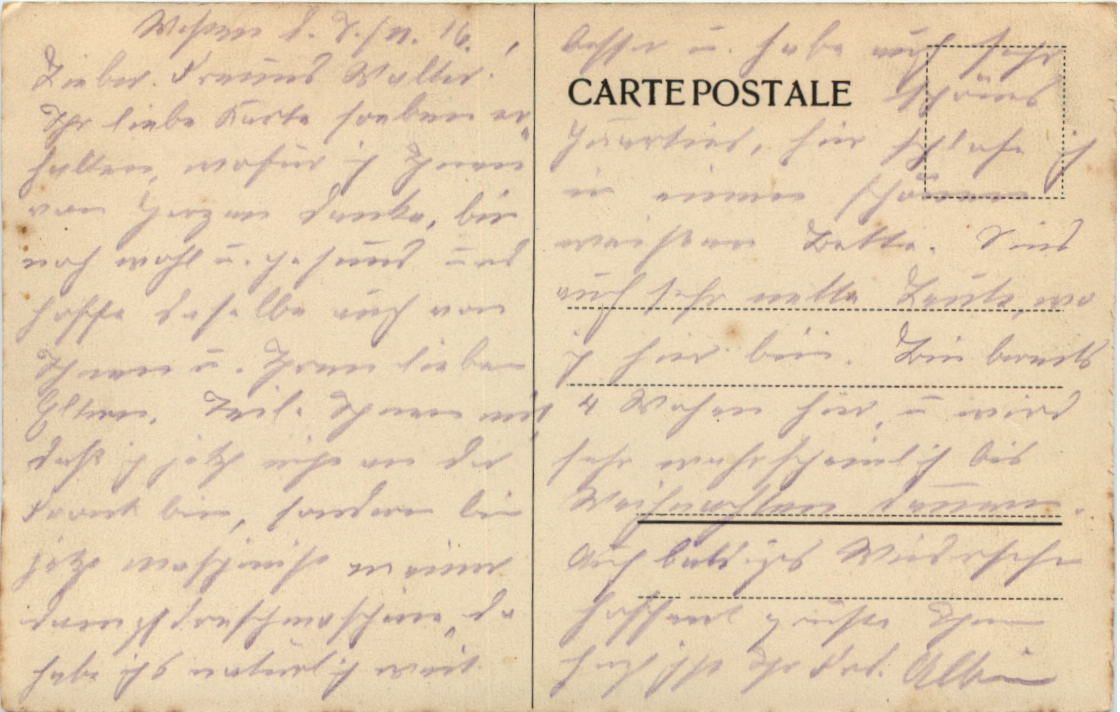 d. 7./11. 16.
Lieber Freund Walter.
Ihr liebe Karte soeben er-
halten, wofür ich Ihnen
von Herzen danke, bin
noch wohl u. gesund und
hoffe dasselbe auch von
Ihnen u. Ihren lieben
Eltern. Teile Ihnen mit,
daß ich jetzt nicht an der
Front bin, sondern bin
jetzt Maschinist an einer
Dampfdreschmaschine, da
habe ichs natürlich weit
besser u. habe auch sehr
CARTE POSTALE
schönes
Quartier, hier schlafe ich
in einem schönen
weißen Bette. Sind
auch sehr nette Leute, wo
ich hier bin. Bin bereits
4 Wochen hier, u. wird
sehr wahrscheinlich bis
Weihnachten dauern.
Auf baldiges Wiedersehn
hoffend grüßt Ihnen
herzlichst Ihr Frd. Albin